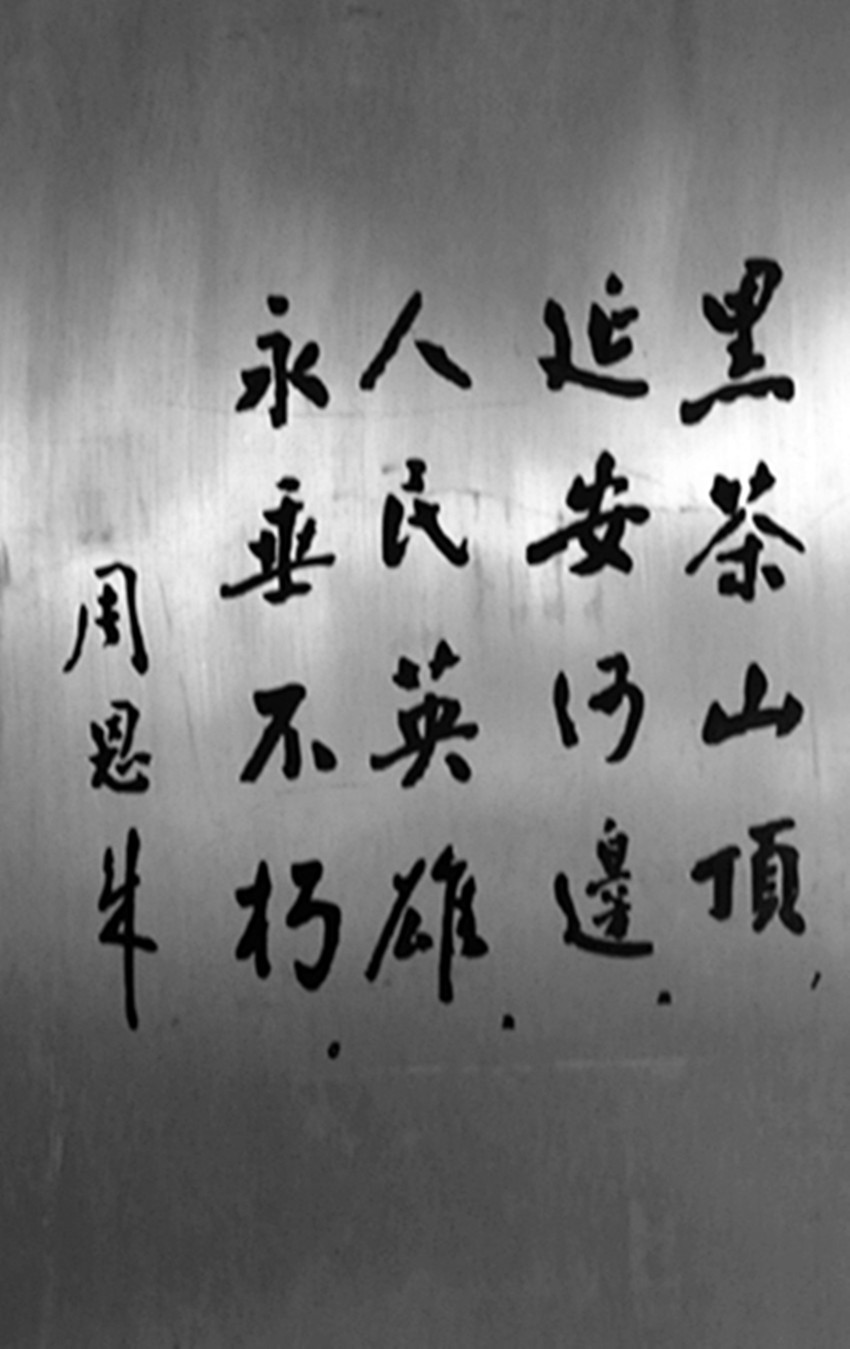 黑茶山頂，
延安河邊．
人民英雄．
永垂不朽．
周恩来